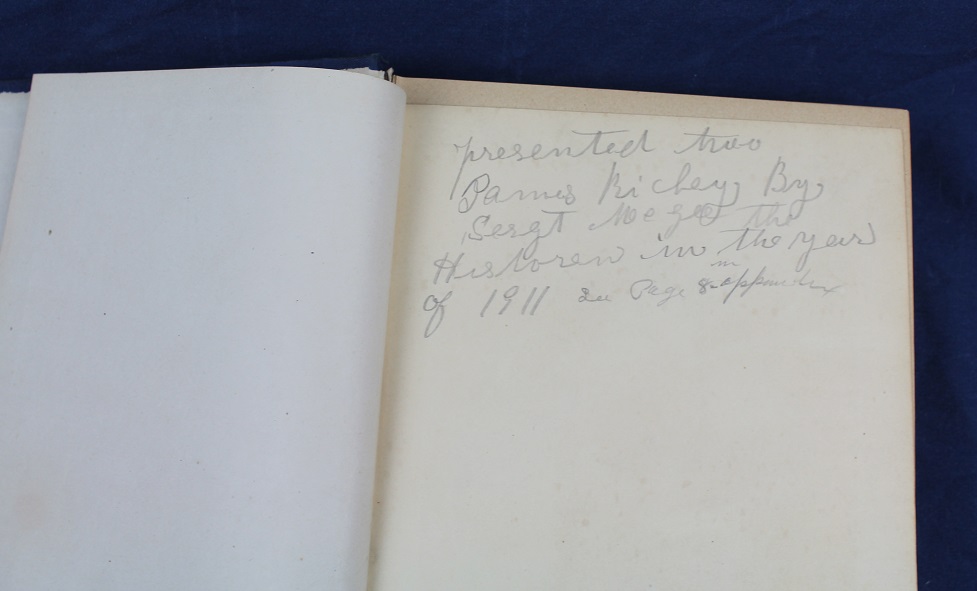 presented two
James Richey By
Sergt McGee the
Historen in the year
of 1911 See Page 8 in appendix